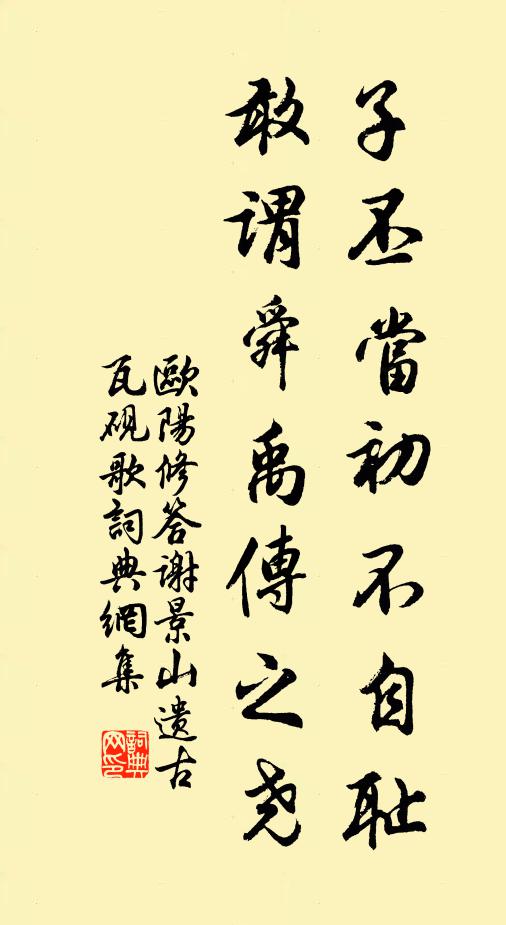 子丕當初不自耻
敢謂舜禹傳之尧
歐陽修答谢景山遺古
瓦砚歌詞典網集
詞典網印